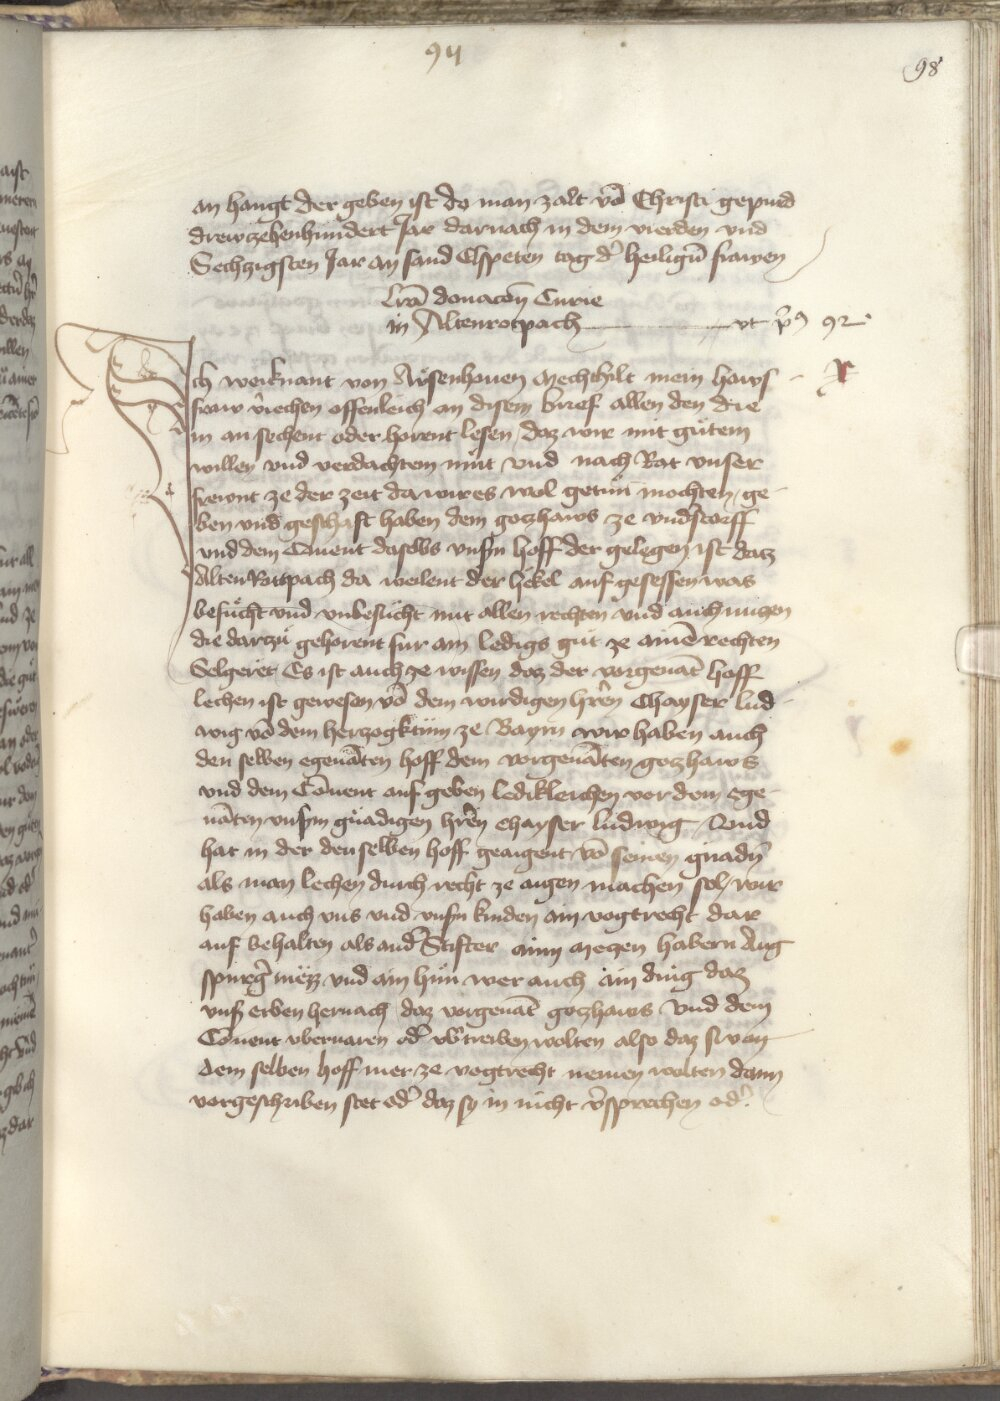 94
98
an hangt der geben ist do man zalt vō Christi gepurd
drewzehenhundert Jar darnach in dem vierden vnd
Sechzigsten Jar an sand Elspeten tag d' heiligū frawen
Lrā donacōn Curie
in Altenrotpach vt p9 92
Ich weiknant von Aẃsenhouen Mechthilt mein haws
fraw v'iechen offenleich an disem brief allen den die
in an sechent oder horent lesen daz wir mit gůtem
willen vnd verdachtem můt vnd nach Rat vnser
frewnt ze der zeit da wir es wol getůn mochten ge
ben vnd geschaft haben dem gotzhaws ze vnd'storff
vnd dem Cōuent daselbs vnsn hoff der gelegen ist datz
Alten Rotpach da weilent der hekel auf gesessen was
besůcht vnd vnbesůcht mit allen rechten vnd auch nutzen
die darzů gehorent fur ain ledigs gůt ze ainē rechten
Selgeret Es ist auch ze wissen daz der vorgenāt hoff
lechen ist gewesen vō dem wirdigen hrēn Chayser Lud
wig vō dem hertzogktům ze Bayrn wir haben auch
den selben egenāten hoff dem vorgenāten gotzhaws
vnd dem Cōuent auf geben ledikleichen vor dem ege
nāten vnsm gnädigen hrēn chayser ludwig Vnd
hat in der den selben hoff geaigent vō seinen gnadn
als man lechen durch recht ze aigen machen sol wir
haben auch vns vnd vnsn kinden ain vogtrecht dar
auf behalten als and' Stifter ainn Metzen habern Aug
spurg' mëzz vnd ain hůn wer auch ain ding daz
vnser erben hernach daz vorgenāt gotzhaws vnd dem
Cōuent vberuaren od' vb'treiben wolten also daz si von
dem selben hoff mer ze vogtrecht nemen wolten dann
vorgeschriben stet od' daz sy in nicht v'sprechen od'